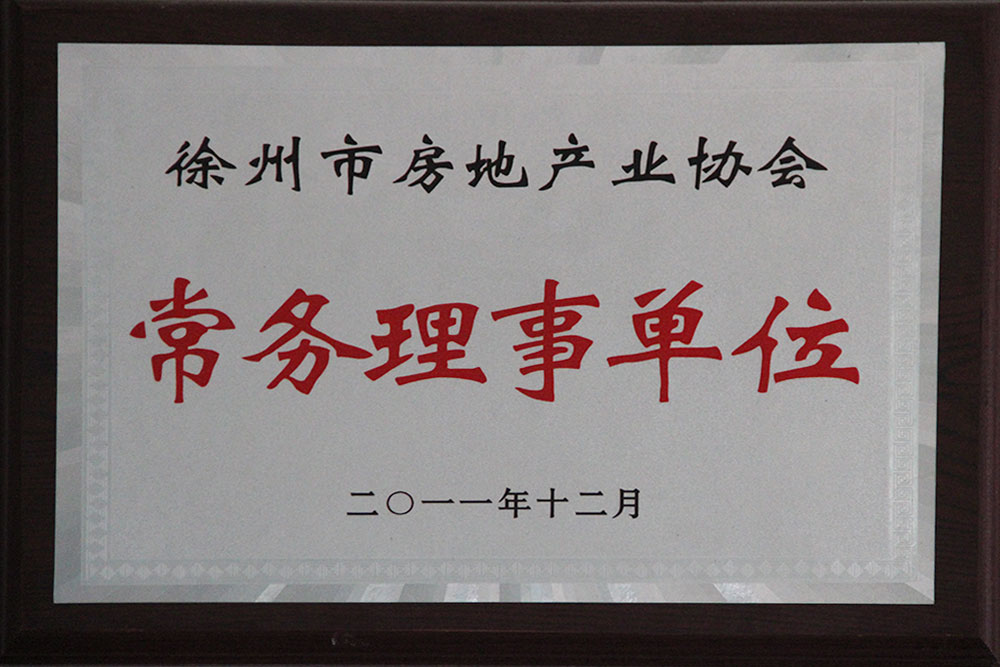 徐州市房地产业协会
常务理事单位
二〇一一年十二月